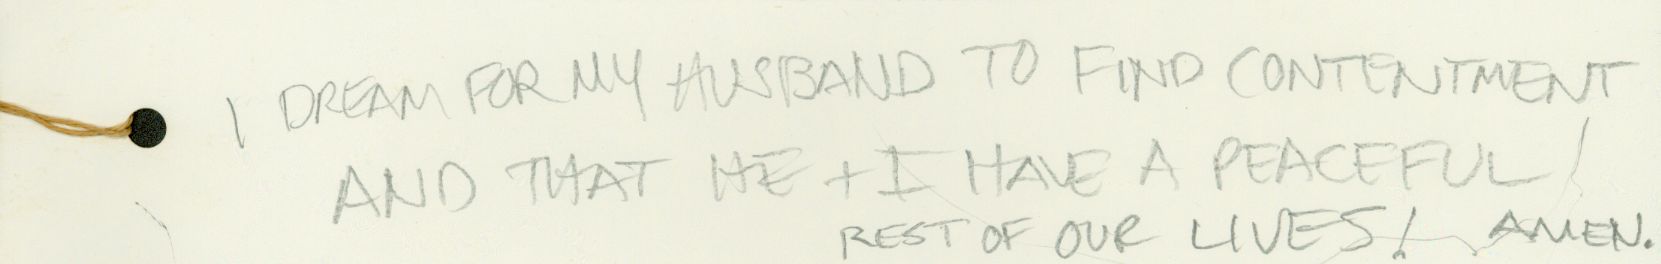 I DREAM FOR MY HUSBAND TO FIND CONTENTMENT
AND THAT HE + I HAVE A PEACEFUL!
REST OF OUR LIVES! AMEN.